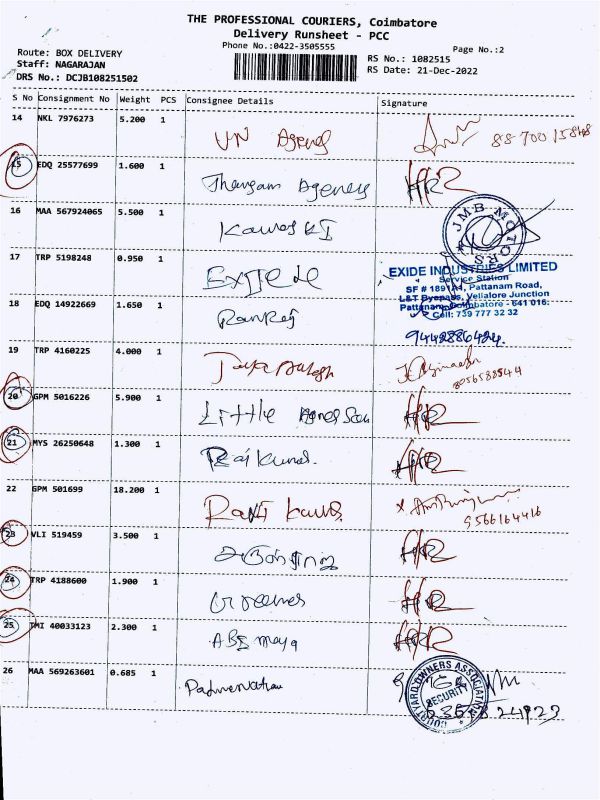 THE PROFESSIONAL COURIERS, Coimbatore
Delivery Runsheet - PCC
Phone No.:0422-3505555
Page No.:2
Route: BOX DELIVERY
Staff: NAGARAJAN
DRS No.: DCJB108251502
RS No.: 1082515
RS Date: 21-Dec-2022
S No Consignment No Weight PCS Consignee Details Signature
14 NKL 7976273 5.200 1 VN Agency
15 EDQ 25577699 1.600 1 Thangam Agency
16 MAA 567924065 5.500 1
JMB MOTORS
17 TRP 5198248 0.950 1 Exide
EXIDE INDUSTRIES LIMITED
Service Station
SF # 189/A1, Pattanam Road,
L&T Byepass, Vellalore Junction
Pattanam, Coimbatore - 641 016.
Cell: 739 777 32 32
18 EDQ 14922669 1.650 1 Ramraj
9442886424.
19 TRP 4160225 4.000 1
8056588544
20 GPM 5016226 5.900 1 Little
21 MYS 26250648 1.300 1 Raj Kumar.
22 GPM 501699 18.200 1
9566164416
23 VLI 519459 3.500 1
24 TRP 4188600 1.900 1
25 TMI 40033123 2.300 1 ABI
26 MAA 569263601 0.685 1
COURTYARD OWNERS ASSOCIATION
SECURITY